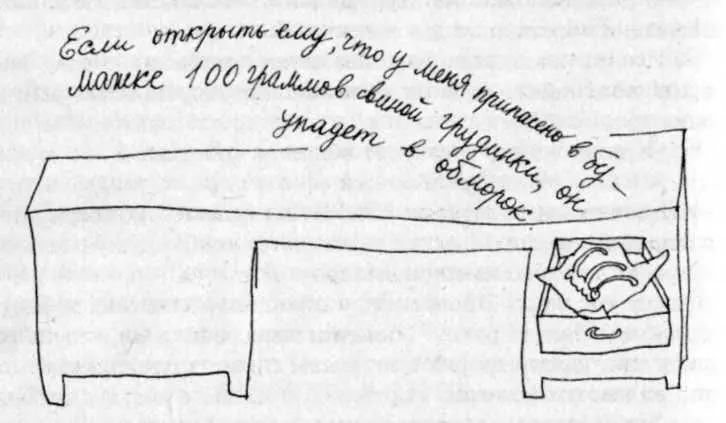 Если открыть ему, что у меня припасено в бу-
мажке 100 граммов свиной грудинки, он
упадет в обморок.